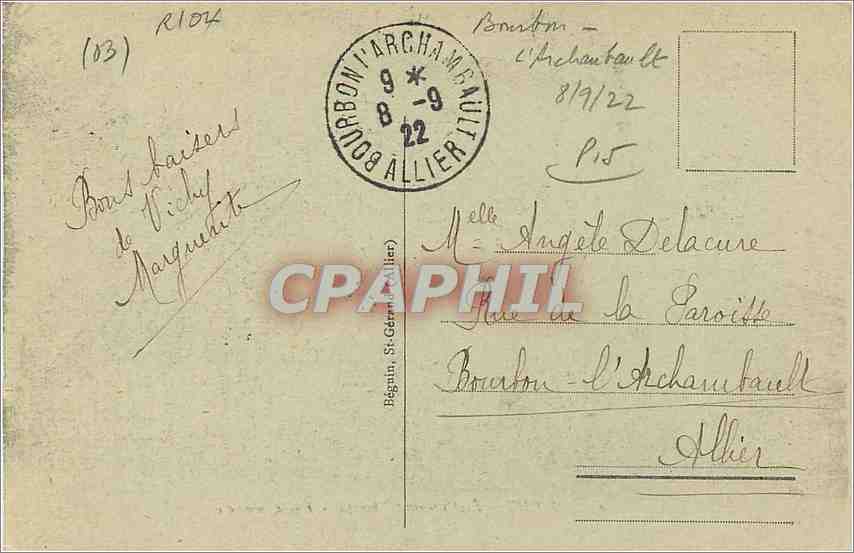 (03)
R104
Bourbon -
l'Archambault
8/9/22
P15
BOURBON L'ARCHAMBAULT
9 *
8 -9
22
ALLIER
Bons baisers
de Vichy
Marguerite
Melle Angèle Delacure
Rue de la Paroisse
Bourbon - l'Archambault
Allier
Béguin, St-Gérand (Allier)
CPAPHIL